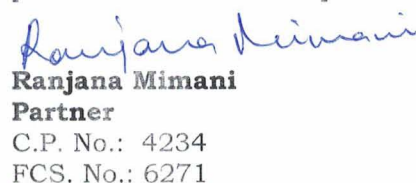 Ranjana Mimani
Ranjana Mimani
Partner
C.P. No.: 4234
FCS. No.: 6271